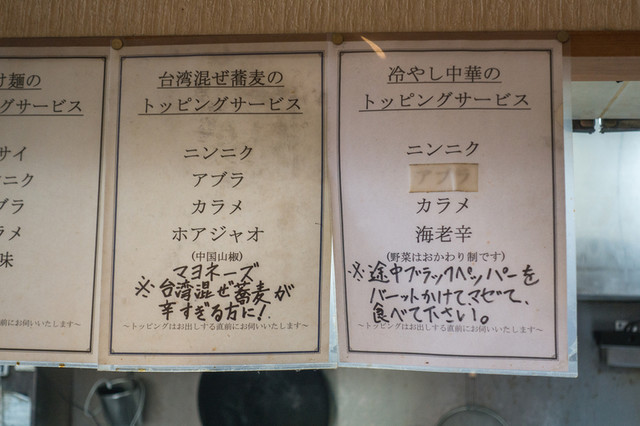 け麺の
グサービス
サイ
ニク
ブラ
ラメ
味
前にお伺いいたします～
台湾混ぜ蕎麦の
トッピングサービス
ニンニク
アブラ
カラメ
ホアジャオ
(中国山椒)
マヨネーズ
※台湾混ぜ蕎麦が
辛すぎる方に!
～トッピングはお出しする直前にお伺いいたします～
冷やし中華の
トッピングサービス
ニンニク
アブラ
カラメ
海老辛
(野菜はおかわり制です)
※途中ブラックペッパーを
バーットかけてマゼて、
食べて下さい。
～トッピングはお出しする直前にお伺いいたします～